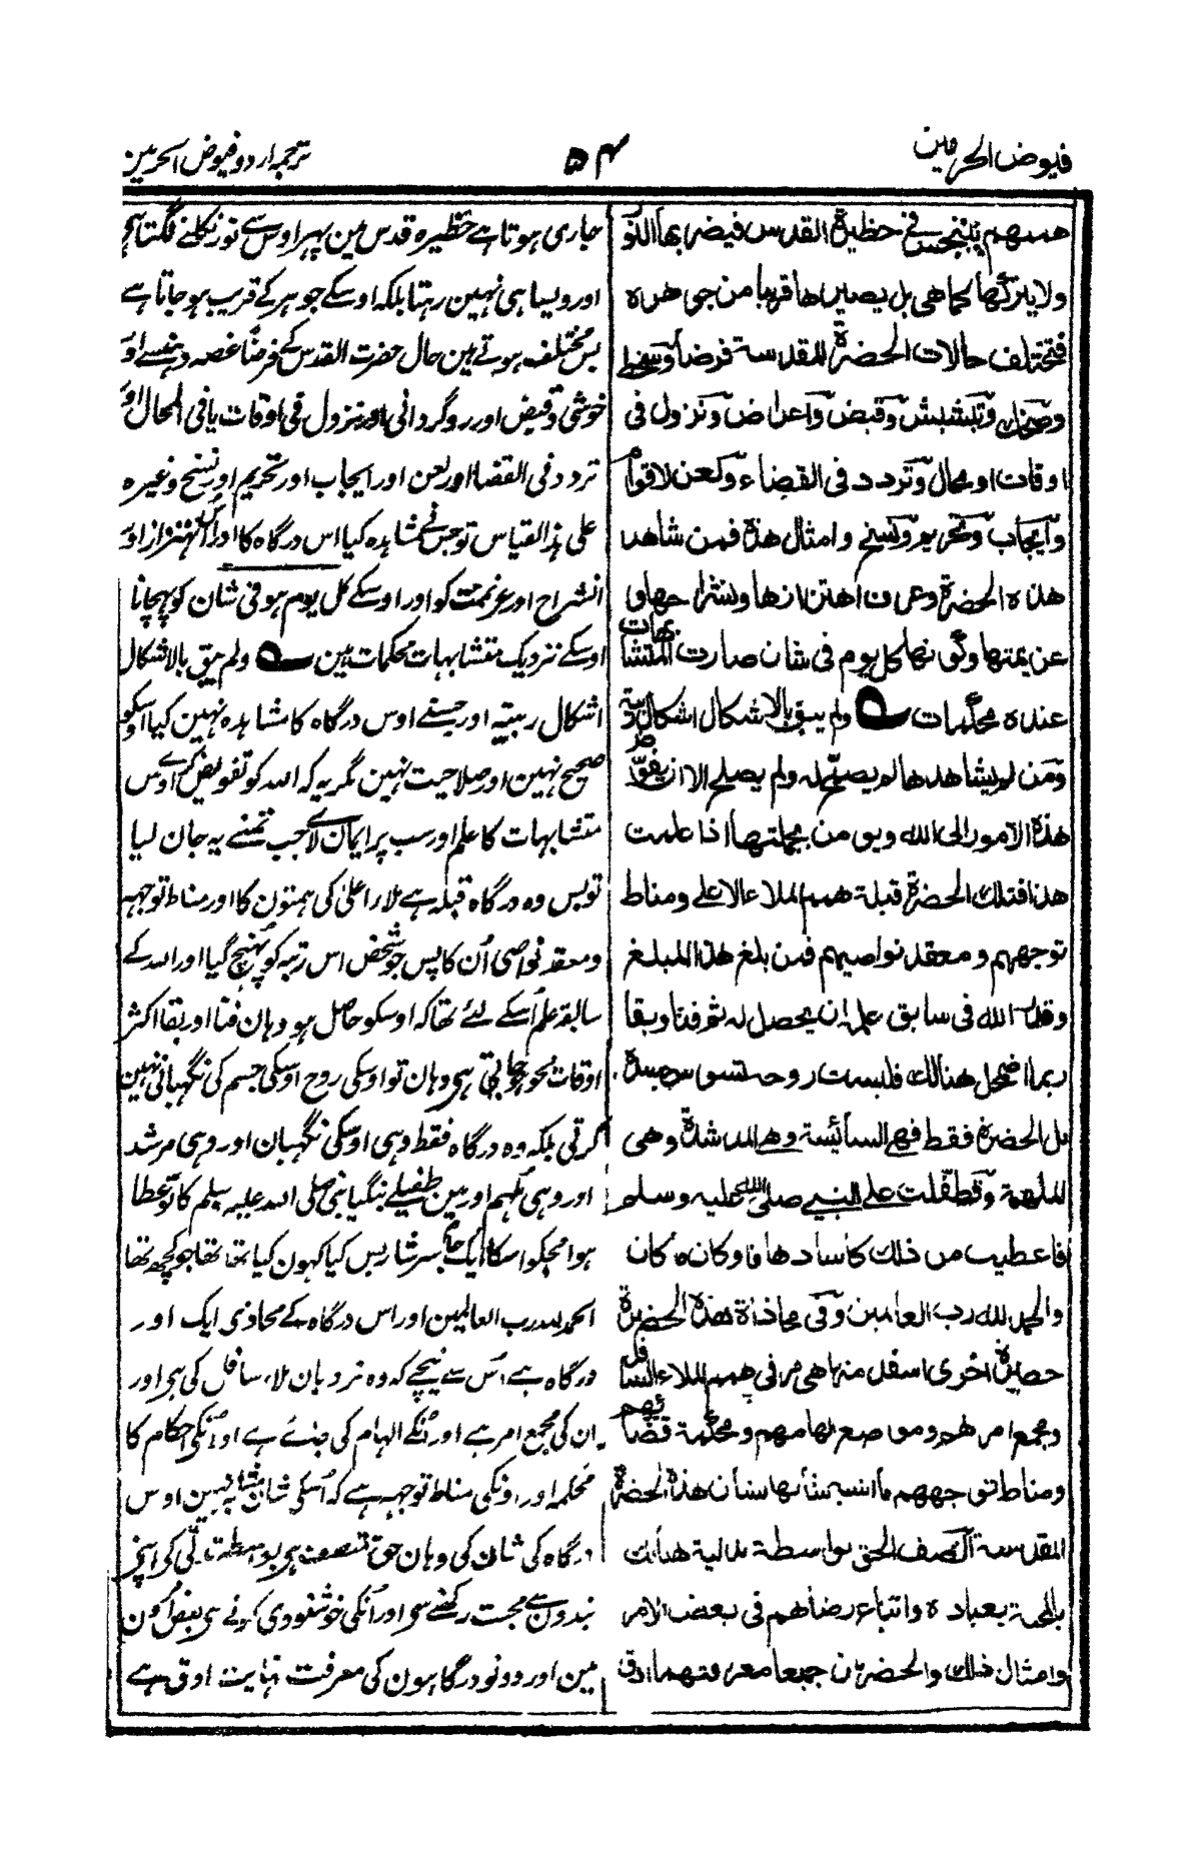 فیوض الحرمین
۵۴
ترجمہ اردو فیوض الحرمین
هممهم ینبجس فی حظیرة القدس فیضر بها اللو
ولا یترکها کما هی بل یصیرها قریبا من جوهره
فتختلف حالات الحضرة المقدسة فرضا وسخط
وضحک وتبشبش وقبض واعراض ونزول فی
اوقات او محال وتردد فی القضاء ولعن لاقوام
وایجاب وتحریم ونسخ وامثال هذه فمن شاهد
هذه الحضرة وعرف اهتزازها وانشراحها و
عزیمتها وکونها کل یوم فی شان صارت المتشابهات
عنده محکمات ولم یبق بالاشکال اشکال ریبة
ومن لم یشاهدها لم یصح له ولم یصلح الا ان یفوض
هذه الامور الی الله ویومن بجملتها اذا علمت
هذا فتلک الحضرة قبلة همم الملاء الاعلی ومناط
توجههم ومعقد نواصیهم فمن بلغ هذا المبلغ
وقد الله فی سابق علمه ان یحصل له ثم فنا وبقا
ربما اضمحل هنالک فلیست روحه تسوس جسده
بل الحضرة فقط فهی السائسة وهی المرشدة وهی
الملهمة وقد تطفلت علی النبی صلی الله علیه وسلم
فاعطیت من ذلک کاسا دهاقا وکان ما کان
والحمد لله رب العالمین وفی محاذاة هذه الحضرة
حضیرة اخری اسفل منها هی مرقی همم الملاء السافل
ومجمع امرهم وموضع الهامهم ومحکمة قضائهم
ومناط توجههم ما اشبه شأنها بشأن هذه الحضرة
المقدسة الحق بواسطة هنالک
بالمحبة بعباده واتباع رضاهم فی بعض الامر
وامثال ذلک والحضرتان جمیعا معرفتهما ادق
جاری ہوتا ہے حظیرہ قدس مین پہر اوس سے نور نکلنے لگتا ہے
اور ویسا ہی نہین رہتا بلکہ اوسکے جوہر کے قریب ہو جاتا ہے
بس مختلف ہوتے ہین حال حضرت القدس کے فرضًا غصہ و ہنسے او
خوشی و قبض اور روگردانی اور نزول فی اوقات یا فی المحال او
تردد فی القضا اور لعن اور ایجاب اور تحریم اور نسخ وغیرہ
علی ہذا القیاس تو جسنے مشاہدہ کیا اس درگاہ کا اور اہتزاز او
انشراح اور عزیمت کو اور اوسکے کل یوم ہو فی شان کو پہچانا
اوسکے نزدیک متشابہات محکمات ہین ولم یبق بالاشکال
اشکال ریبة اور جسنے اوس درگاہ کا مشاہدہ نہین کیا اسکو
صحیح نہین اور صلاحیت نہین مگر یہ کہ اللہ کو تفویض کرے اوس
متشابہات کا علم اور سب پر ایمان لائے جب تمنے یہ جان لیا
تو بس وہ درگاہ قبلہ ہے ملاء اعلیٰ کی ہمتون کا اور مناط توجہہ
و معقد نواصی اُن کا پس جو شخص اس رتبہ کو پہنچ گیا اور اللہ کے
سابقہ علم اسکے لئے تھا کہ اوسکو حاصل ہو وہان فنا اور بقا اکثر
اوقات محو ہو جاتی ہی وہان تو اوسکی روح اوسکی جسم کی نگہبانی نہین
کرتی بلکہ وہ درگاہ فقط وہی اوسکی نگہبان اور وہی مرشد
اور وہی ملہم اور مین طفیلے بنگیا نبی صلی اللہ علیہ وسلم کا تو عطا
ہوا مجکو اسکا ایک جام سرشار پس کیا کہون کیا تھا تھا جو کچھ تھا
الحمد للہ رب العالمین اور اس درگاہ کے محاذی ایک اور
درگاہ ہے اُس سے نیچے کہ وہ نردبان ملاء سافل کی ہی اور
ان کی مجمع امر ہے اور انکے الہام کی جائے ہے اور انکی احکام کا
محکمہ اور اونکی مناط توجہہ ہے کہ اُسکی شان مشابہ ہین اوس
درگاہ کی شان کی وہان حق متصف ہے بواسطہ تدلّی کو اپنے
بندون سے محبت رکھنے سے اور انکی خوشنودی کرنے سے بعض امرون
مین اور دونو درگاہون کی معرفت نہایت اوق ہے